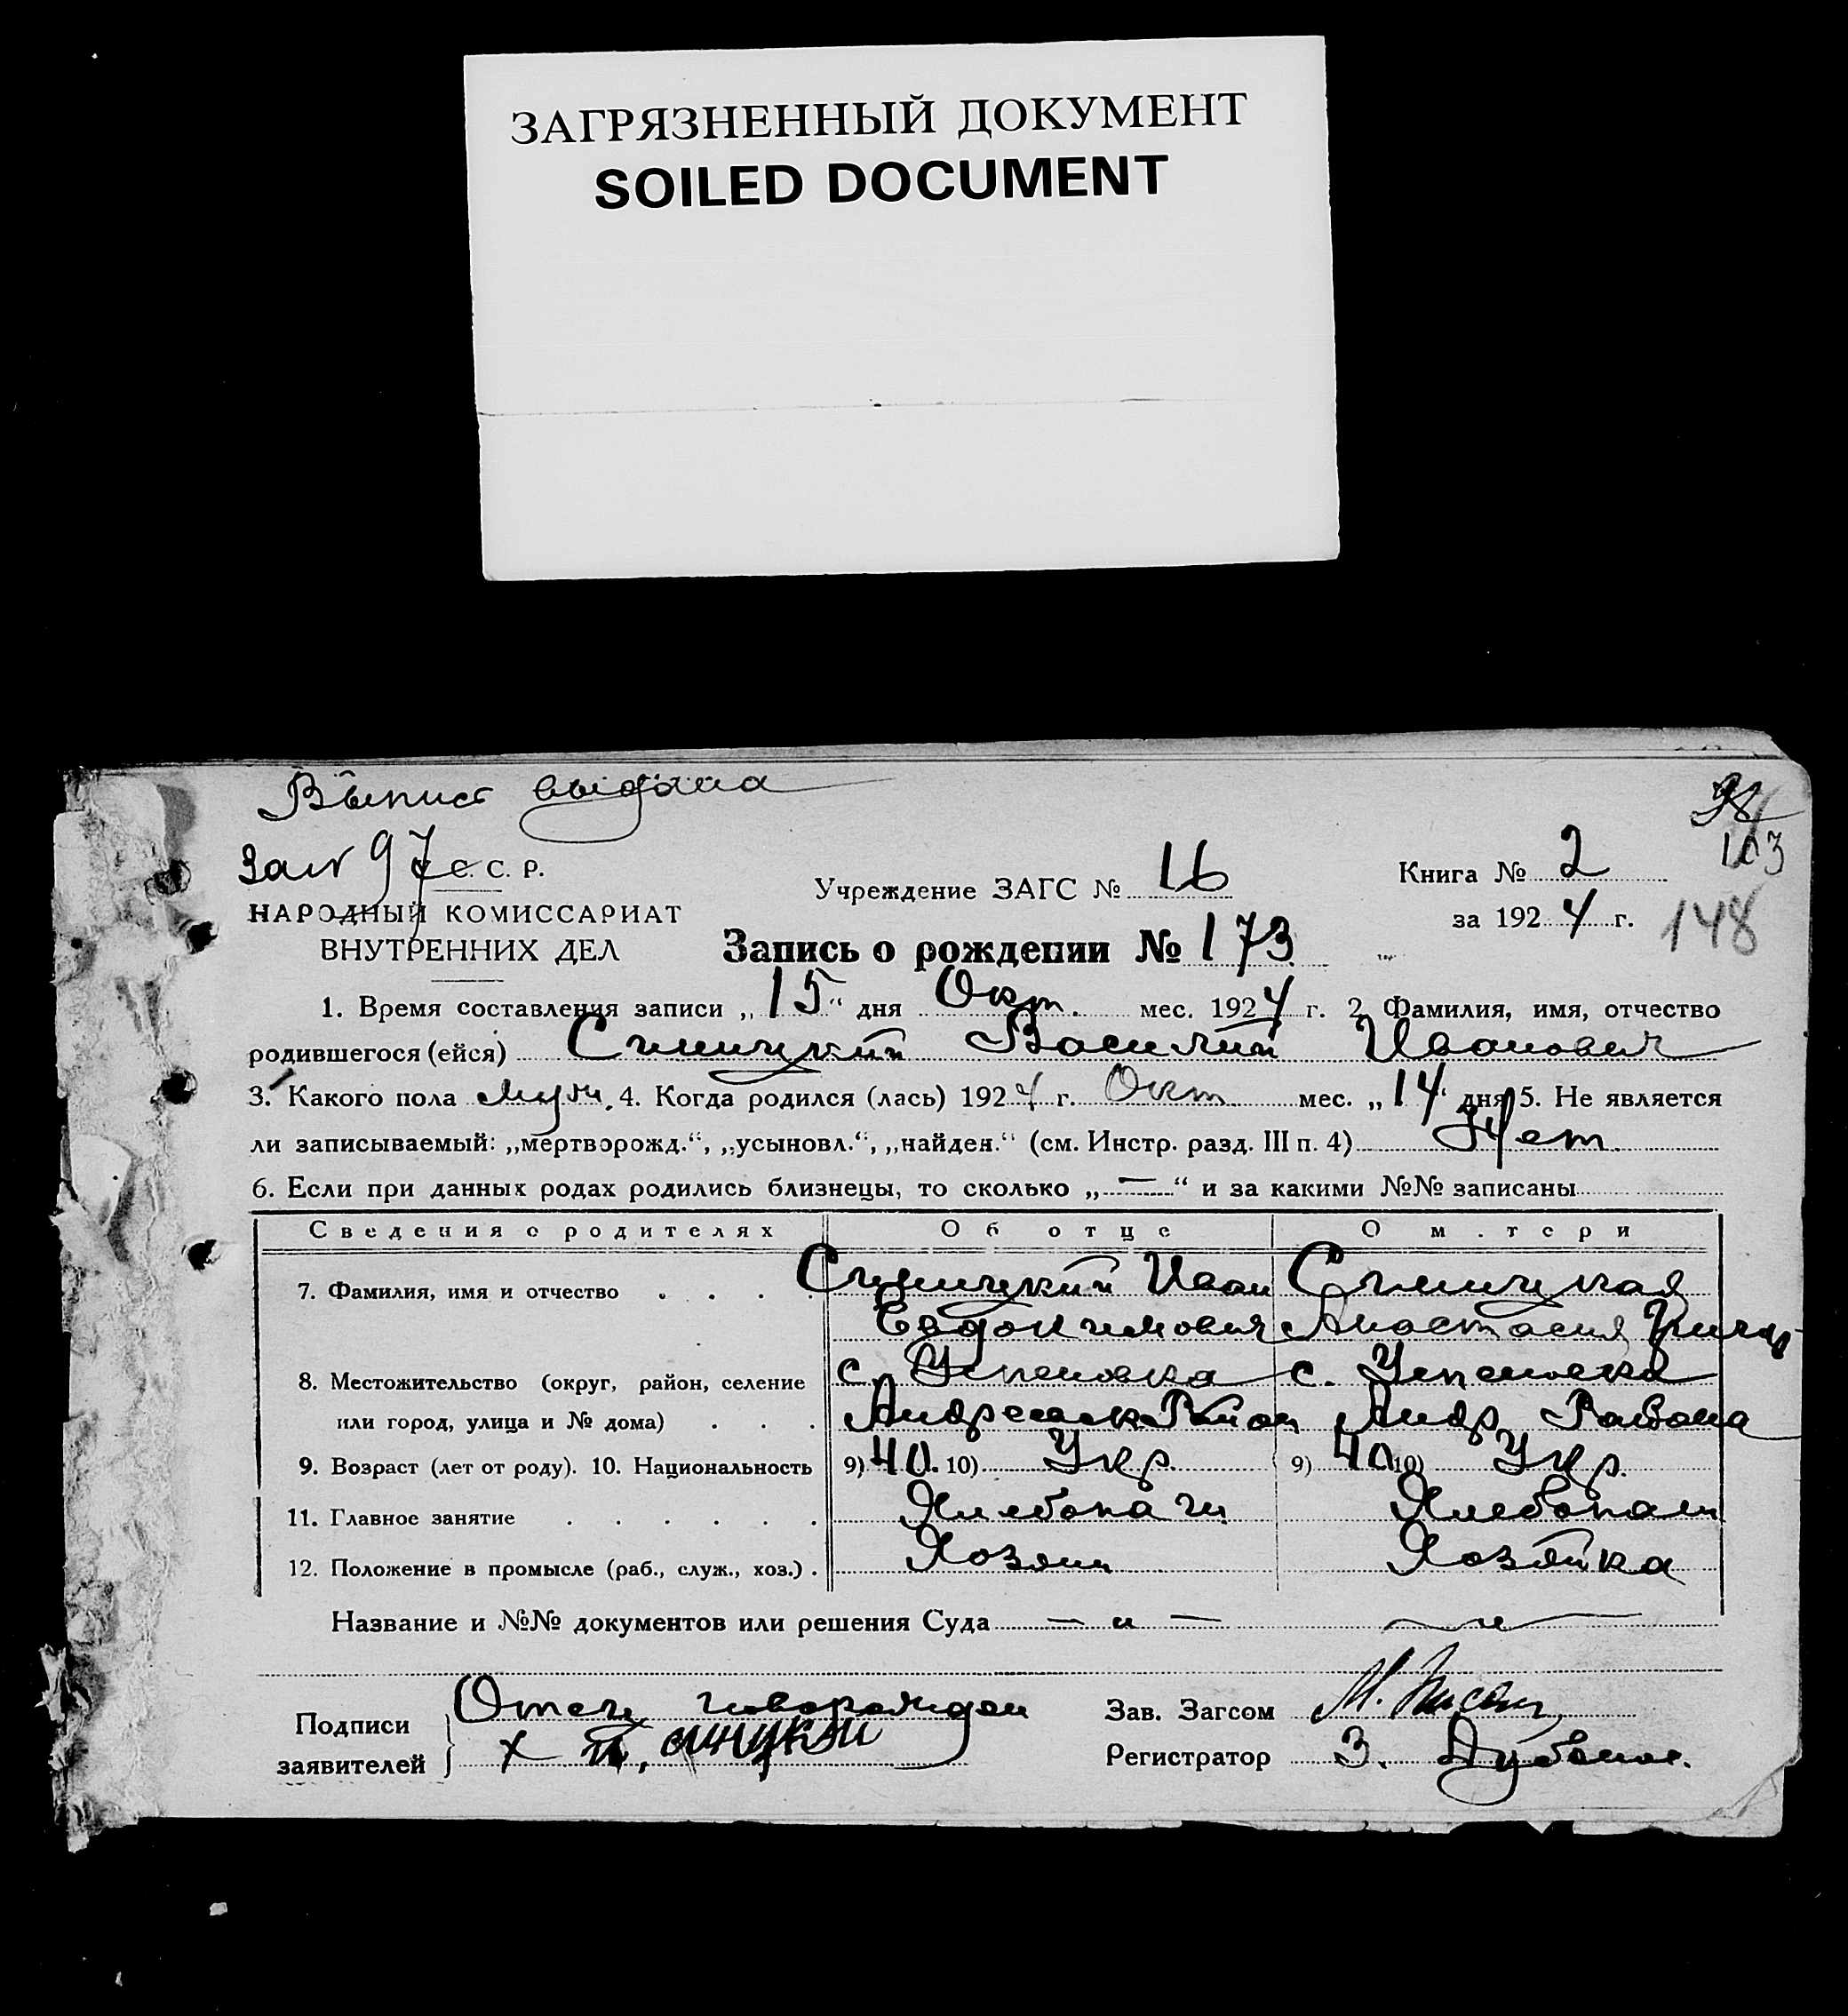 ЗАГРЯЗНЕННЫЙ ДОКУМЕНТ
SOILED DOCUMENT
Выпис выдана
98
97 С. С. Р.
103
Учреждение ЗАГС № 16
Книга № 2
НАРОДНЫЙ КОМИССАРИАТ
за 1924 г.
148
ВНУТРЕННИХ ДЕЛ
Запись о рождении № 173
1. Время составления записи „15“ дня Окт. мес. 1924 г. 2. Фамилия, имя, отчество
родившегося (ейся) Синицкий Василий Иванович
3. Какого пола муж. 4. Когда родился (лась) 1924 г. Окт. мес. „14“ дня 5. Не является
ли записываемый: „мертворожд.“, „усыновл.“, „найден.“ (см. Инстр. разд. III п. 4) Нет
6. Если при данных родах родились близнецы, то сколько „—“ и за какими №№ записаны
Сведения о родителях Об отце О м.тери
7. Фамилия, имя и отчество . . . . Синицкий Иван Синицкая
Евдокимович Анастасия
8. Местожительство (округ, район, селение с. Успеновка с. Успеновка
или город, улица и № дома) . . . Район Андр. Района
9. Возраст (лет от роду). 10. Национальность 9) 40. 10) Укр. 9) 40 10) Укр.
11. Главное занятие . . . . . . Хлебопаш. Хлебопаш
12. Положение в промысле (раб., служ., хоз.) . Хозяин Хозяйка
Название и №№ документов или решения Суда — „ — — „ —
Подписи заявителей
Отец новорожден
х Синицкий
Зав. Загсом М.
Регистратор З.